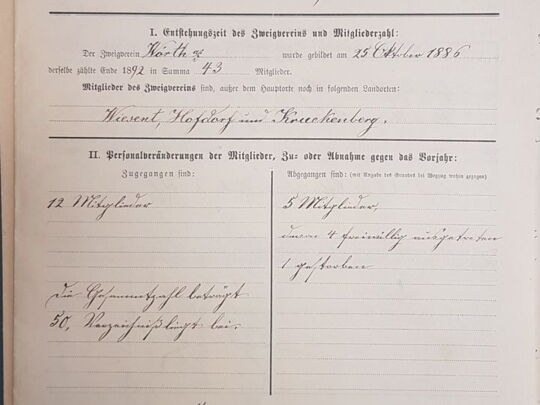 I. Entstehungszeit des Zweigvereins und Mitgliederzahl:
Der Zweigverein Wörth a/ wurde gebildet am 25 Oktober 1886
derselbe zählte Ende 1892 in Summa 43 Mitglieder.
Mitglieder des Zweigvereins sind, außer dem Hauptorte noch in folgenden Landorten:
Wiesent, Hofdorf und Kruckenberg.
II. Personalveränderungen der Mitglieder, Zu- oder Abnahme gegen das Vorjahr:
Zugegangen sind:
12 Mitglieder
Die Gesammtzahl beträgt
50, Verzeichniß liegt bei.
Abgegangen sind: (mit Angabe des Grundes bei Wegzug wohin gezogen)
5 Mitglieder,
davon 4 freiwillig ausgetreten
1 gestorben